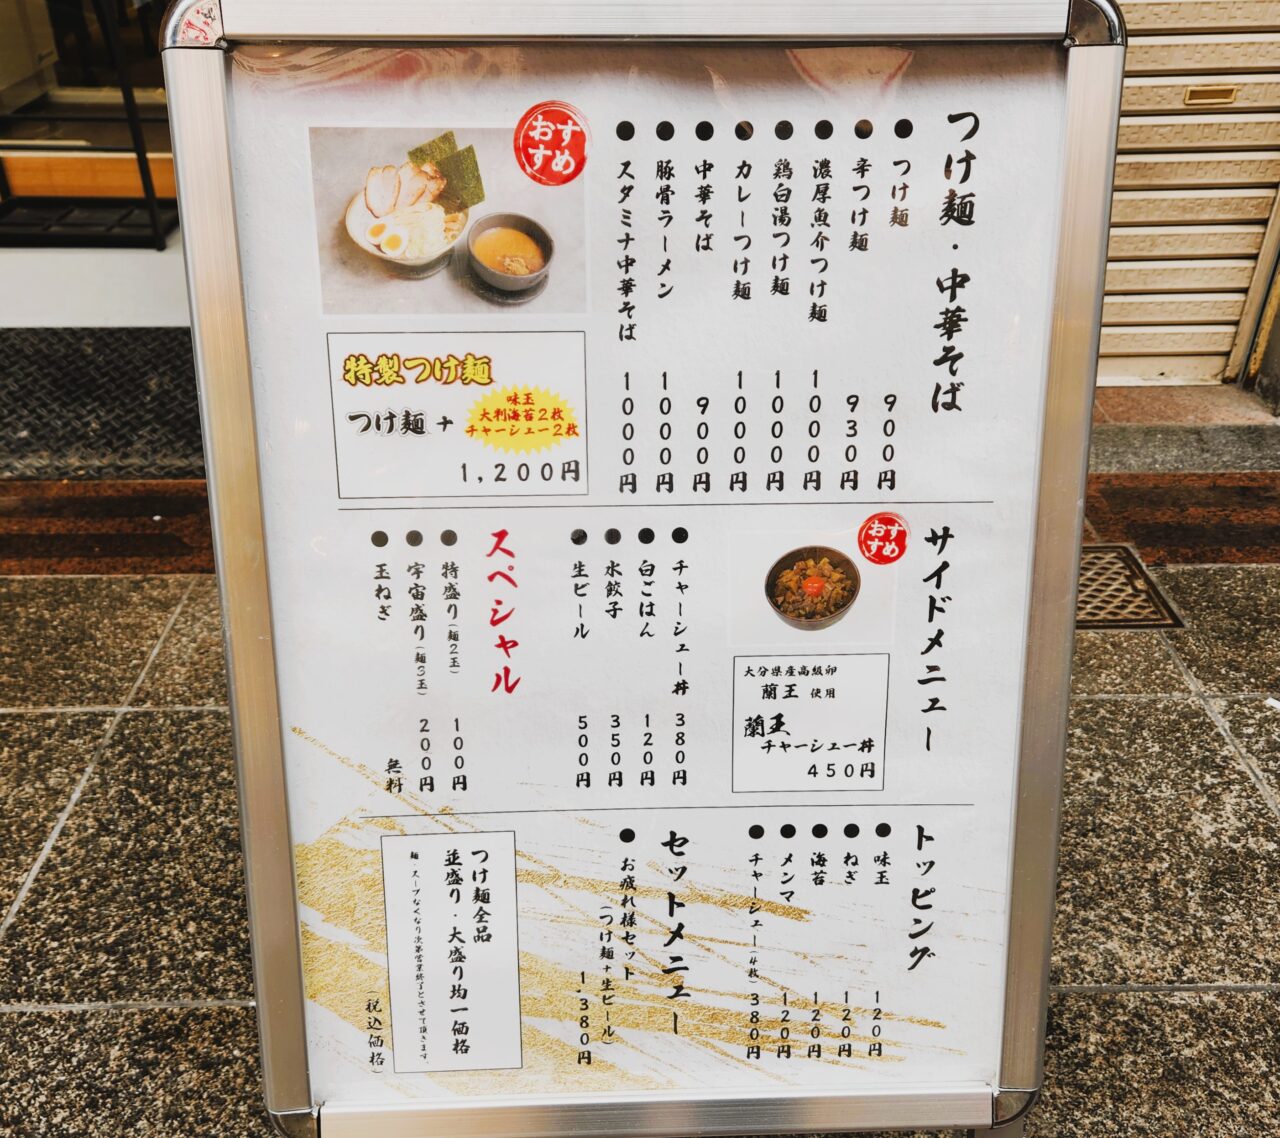 つけ麺・中華そば
●つけ麺 900円
●辛つけ麺 930円
●濃厚魚介つけ麺 1000円
●鶏白湯つけ麺 1000円
●カレーつけ麺 1000円
●中華そば 900円
●豚骨ラーメン 1000円
●スタミナ中華そば 1000円
おすすめ
特製つけ麺
つけ麺+
味玉
大判海苔2枚
チャーシュー2枚
1,200円
サイドメニュー
おすすめ
大分県産高級卵
蘭王 使用
蘭王
チャーシュー丼
450円
●チャーシュー丼 380円
●白ごはん 120円
●水餃子 350円
●生ビール 500円
スペシャル
●特盛り(麺2玉) 100円
●宇宙盛り(麺3玉) 200円
●玉ねぎ 無料
トッピング
●味玉 120円
●ねぎ 120円
●海苔 120円
●メンマ 120円
●チャーシュー(4枚) 380円
セットメニュー
●お疲れ様セット
(つけ麺+生ビール)
1,380円
つけ麺全品
並盛り・大盛り均一価格
麺、スープなくなり次第営業終了とさせて頂きます。
(税込価格)